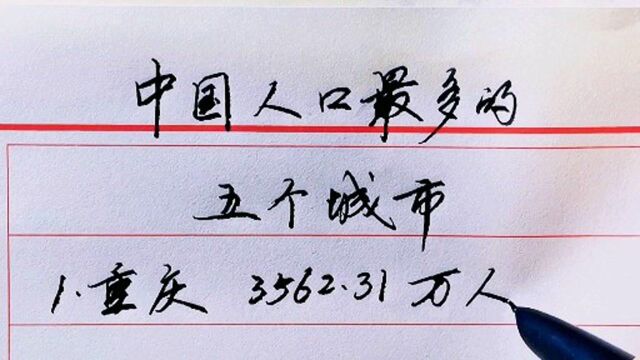 中国人口最多的
五个城市
1.重庆 3562.31万人